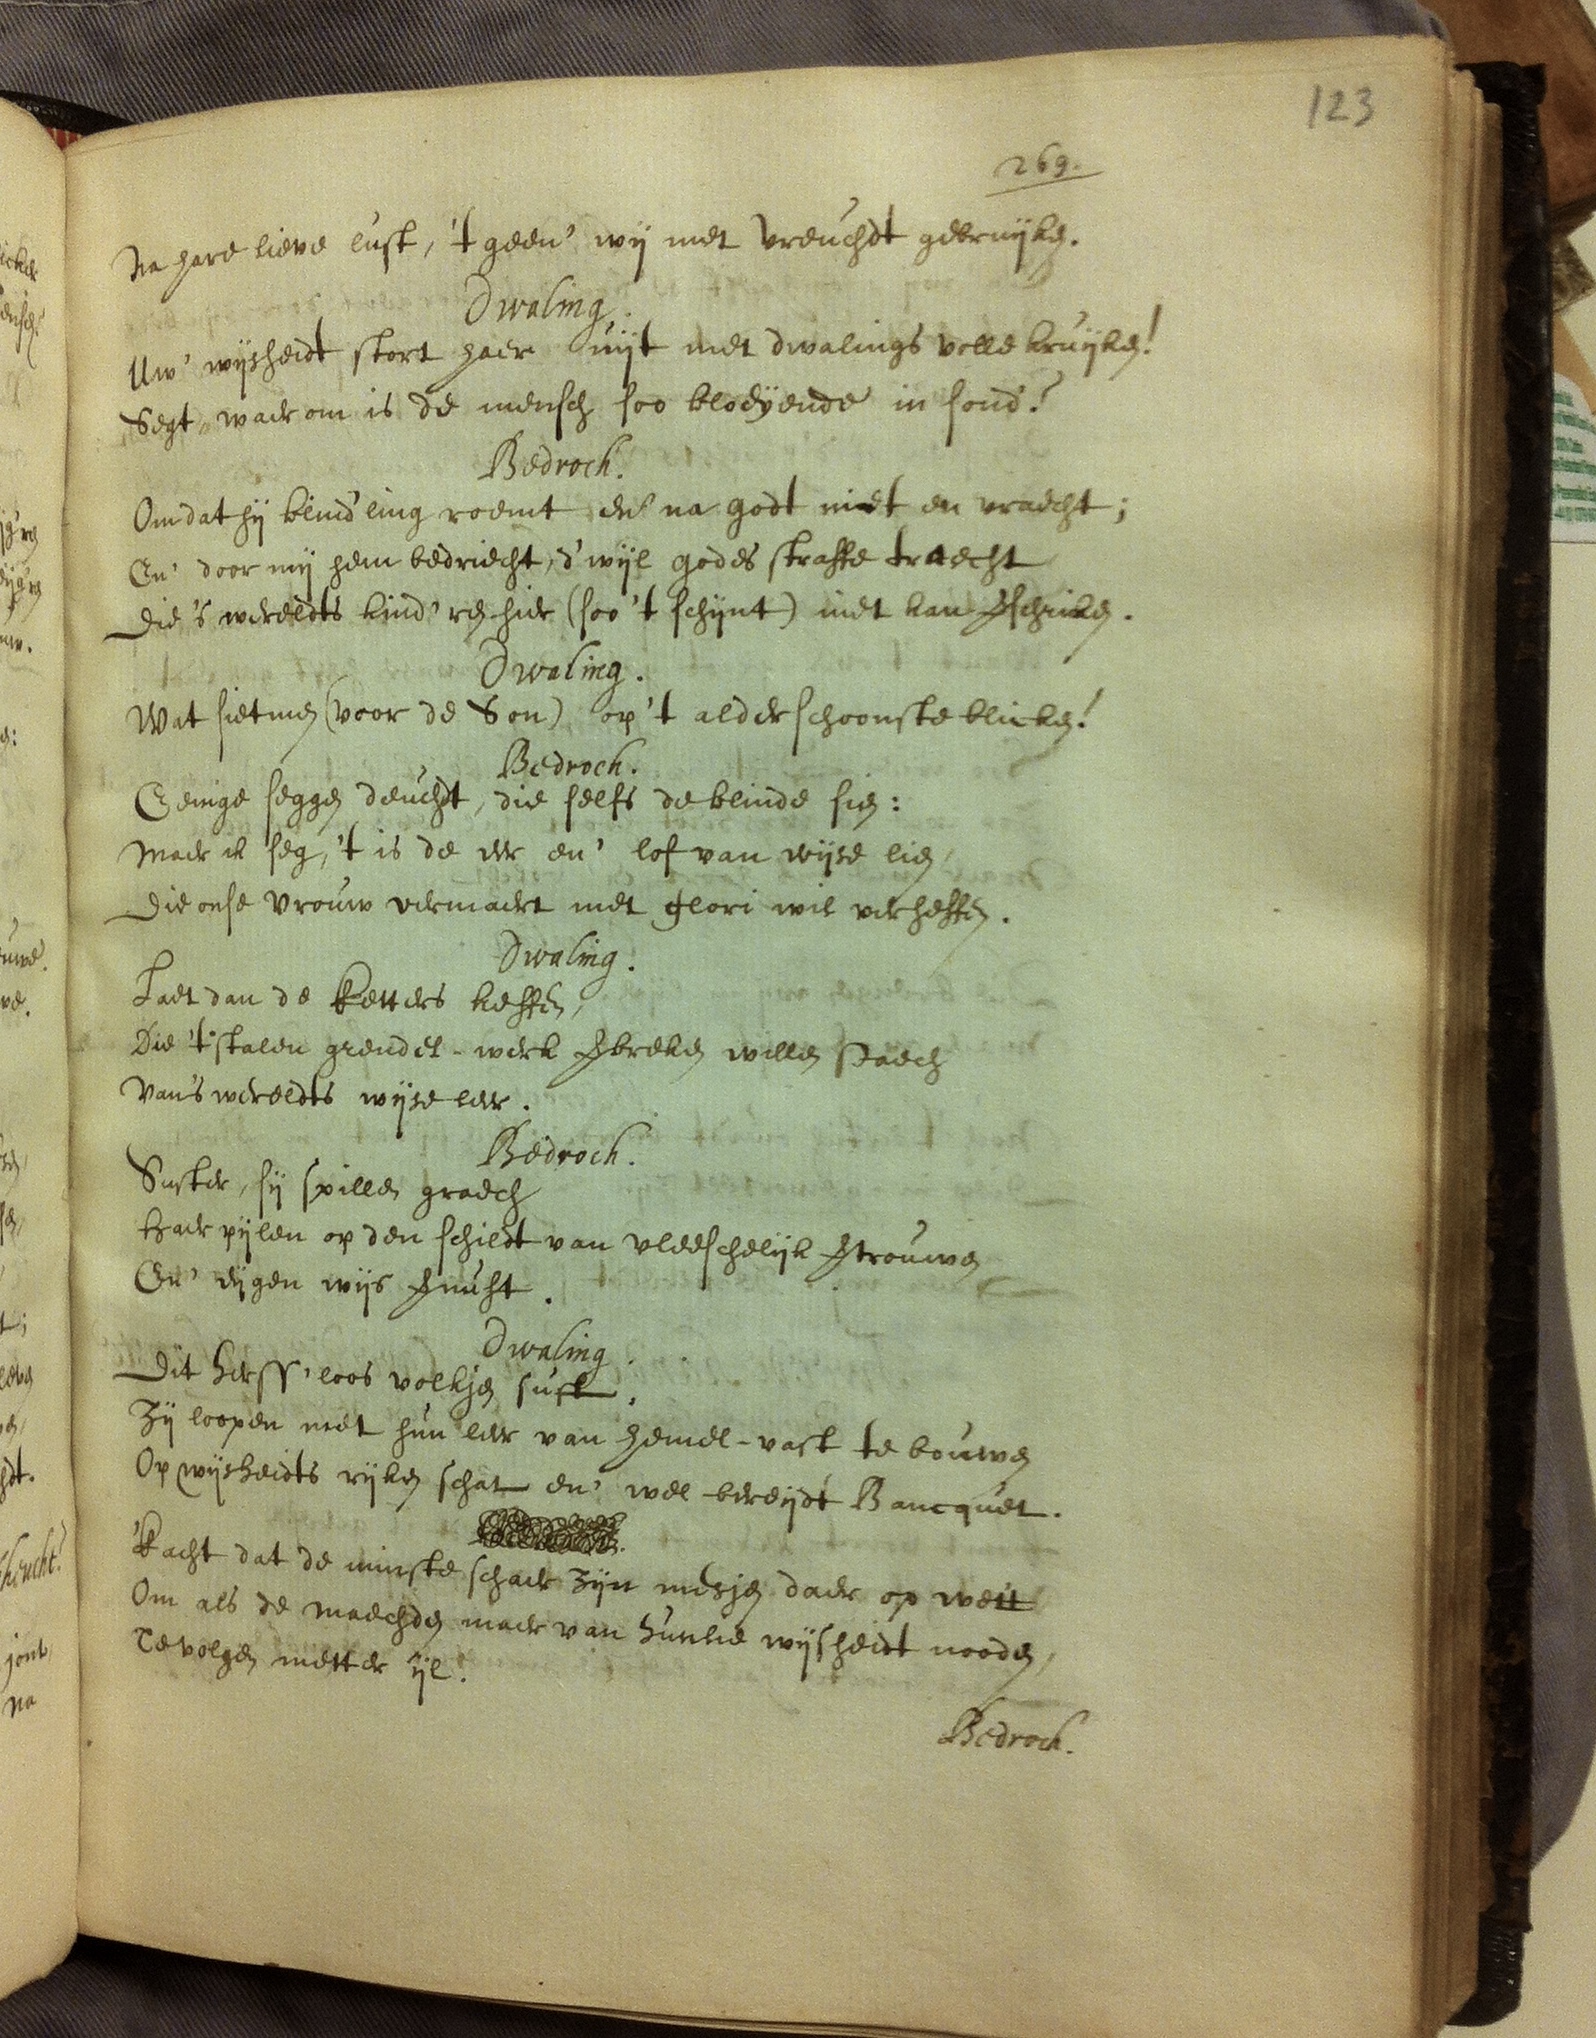 123
269.
Na hare lieve lust, 't geen' wij met vreuchdt gebruijken.
Dwaling.
Uw' wijsheidt stort haer uijt met dwalings volle kruijken!
Segt, waerom is de mensch soo bloeyende in sond?
Bedroch.
Omdat hij blind'ling roemt en' na godt niet en vraecht;
En' door mij hem bedriecht, d'wijl godes straffe traecht
Die 's wereldts kind'ren hier (soo 't schijnt) niet kan verschricken.
Dwaling.
Wat sietmen (voor de Son) op 't alderschoonste blicken!
Bedroch.
Eenige seggen deucht, die selfs de blinde sien:
Maer ik seg, 't is de eer en' lof van wijse lien,
Die onse vrouw vermaert met glori wil verheffen.
Dwaling.
Laet dan de ketters keffen,
Die 't stalen grendel-werk verbreken willen staech
Van 's wereldts wijse leer.
Bedroch.
Suster, sij spillen graech
Haer pijlen op den schildt van vleeschelijk vertrouwen
En' eijgen wijs vernuft.
Dwaling.
Dit herss'loos volkjen suft,
Zij loopen met hun leer van hemel-vast te bouwen
Op wijsheidts rijken schat en' wel-bereijdt Bancquet.
'k acht dat de minste schaer zijn mesjen daer op wett
Om als de maechden maer van hunne wijsheidt nooden,
Te volgen metter ijl.
Bedroch.